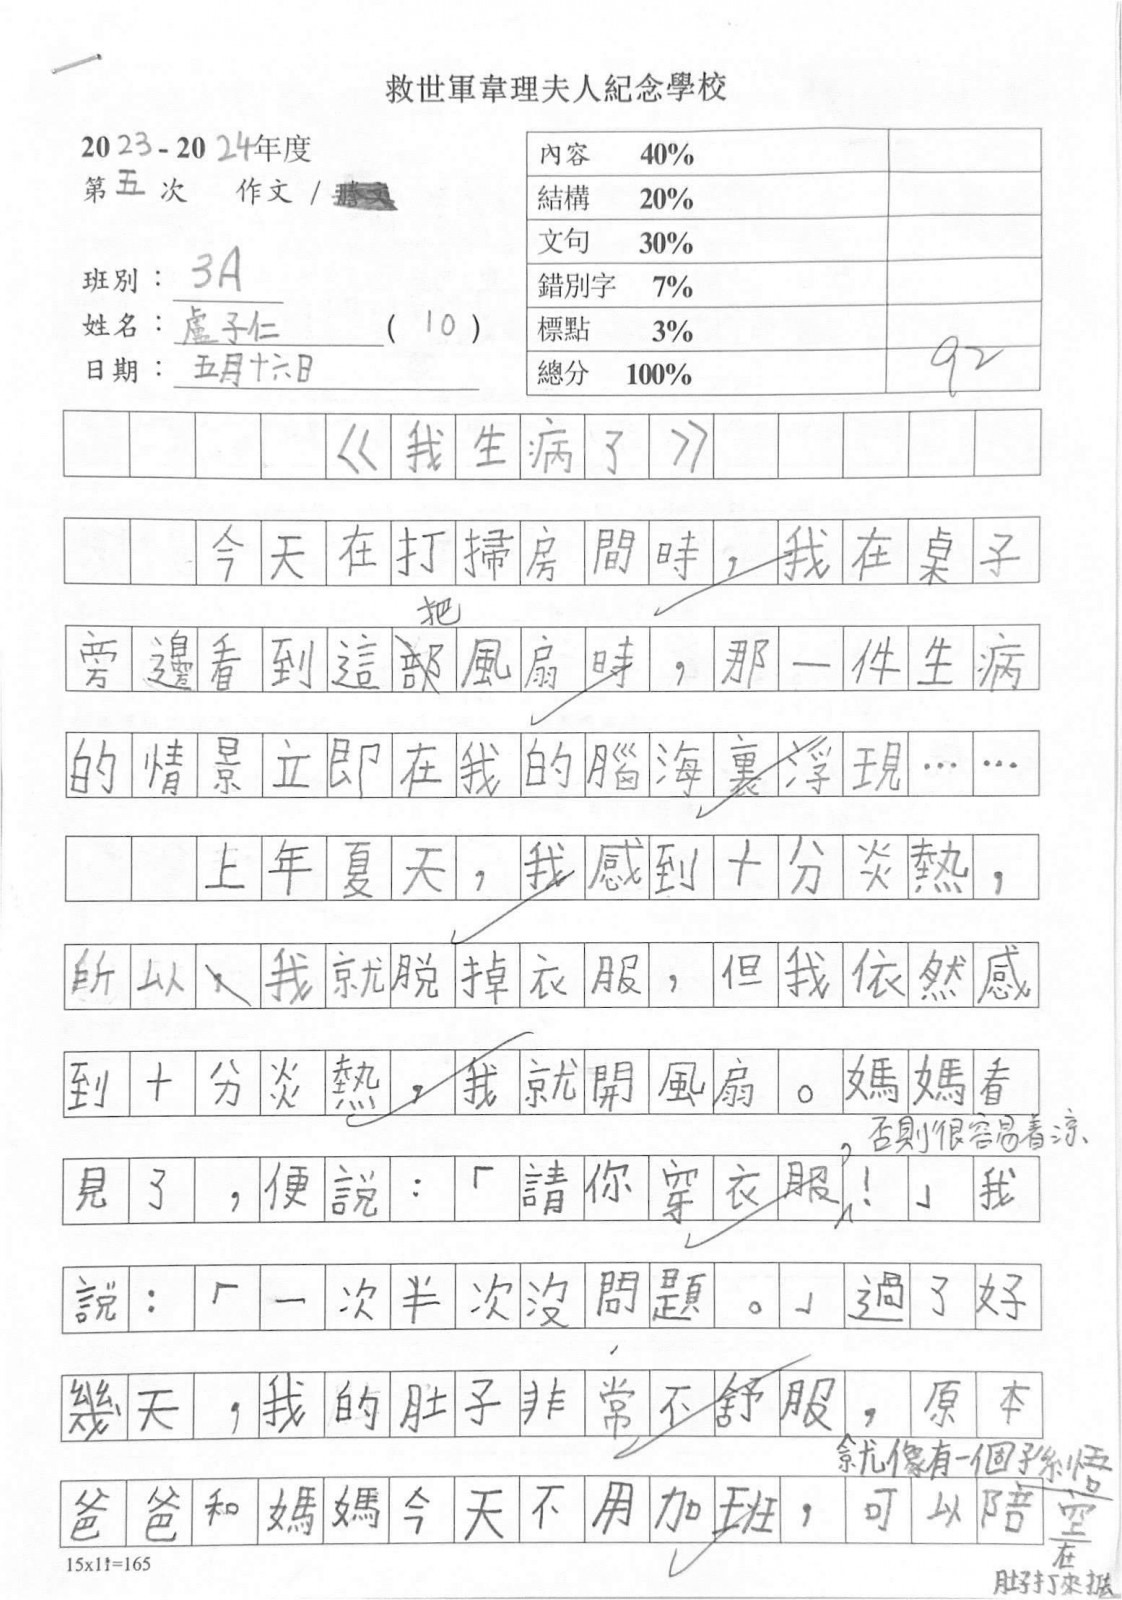 救世軍韋理夫人紀念學校
2023-2024年度
第五次 作文 /
班別：3A
姓名：盧子仁 (10)
日期：五月十六日
內容 40%
結構 20%
文句 30%
錯別字 7%
標點 3%
總分 100% 92
《我生病了》
今天在打掃房間時，我在桌子
把
旁邊看到這部風扇時，那一件生病
的情景立即在我的腦海裏浮現……
上年夏天，我感到十分炎熱，
所以，我就脱掉衣服，但我依然感
到十分炎熱，我就開風扇。媽媽看
，否則很容易着涼
見了，便説：「請你穿衣服！」我
説：「一次半次沒問題。」過了好
幾天，我的肚子非常不舒服，原本
就像有一個孫悟空在肚子打來打去
爸爸和媽媽今天不用加班，可以陪
15x11=165